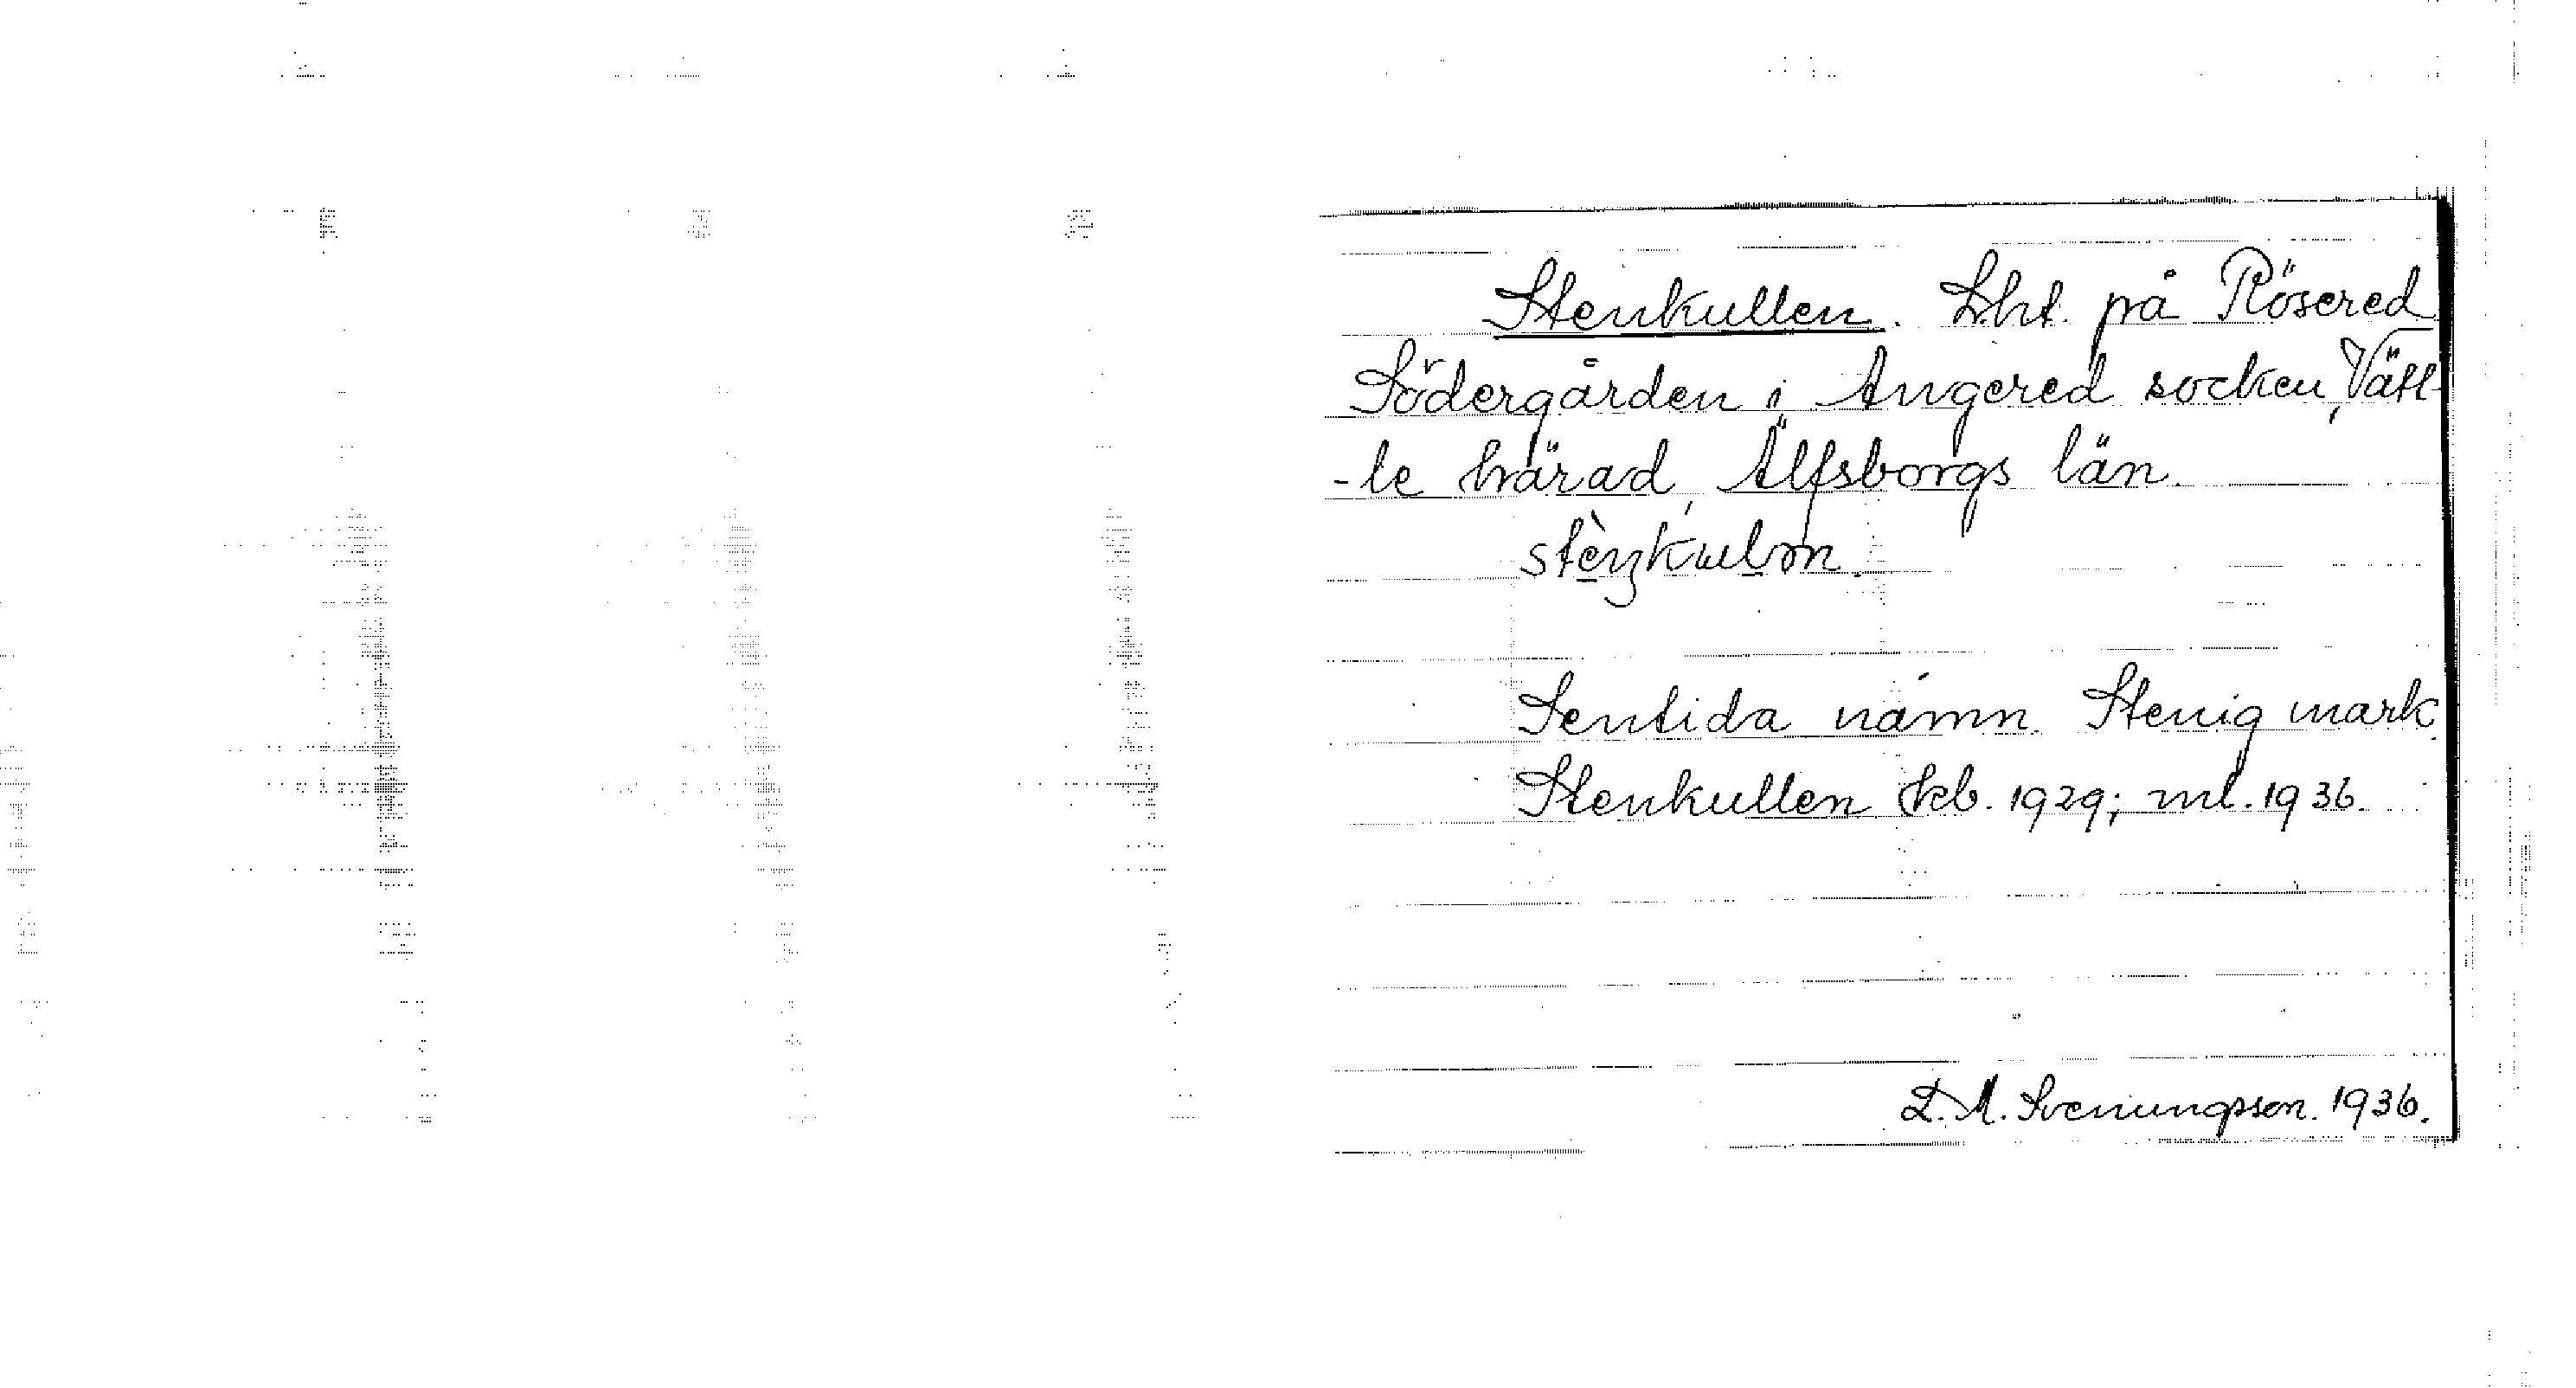 Stenkullen. Lht. på Rösered
Södergården i Angered socken, Vätt-
-le härad, Älfsborgs län.
Sentida namn. Stenig mark.
Stenkullen kb. 1929; ml. 1936.
L. M. Svenungsson. 1936.